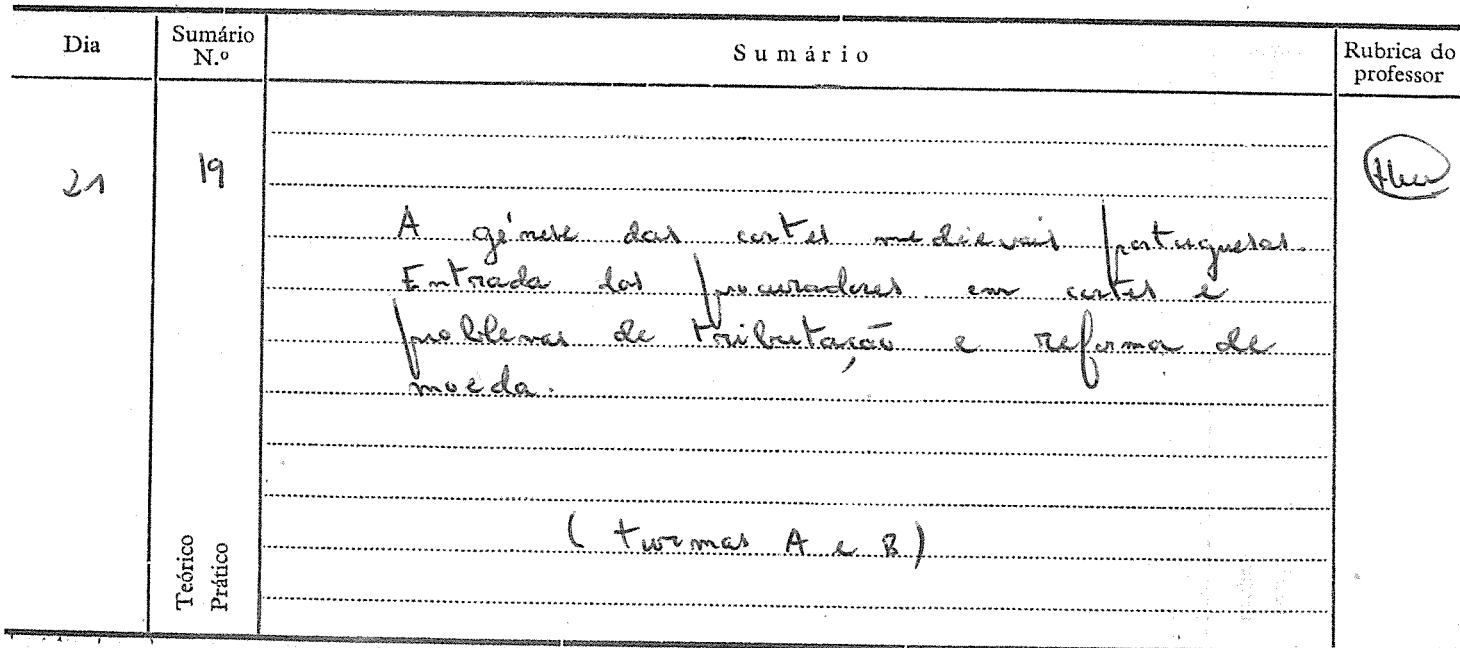 Dia Sumário N.º Sumário Rubrica do professor
21 19
A génese das cortes medievais portuguesas.
Entrada dos procuradores em cortes e
problemas de tributação e reforma de
moeda.
(turmas A e B)
Teórico
Prático